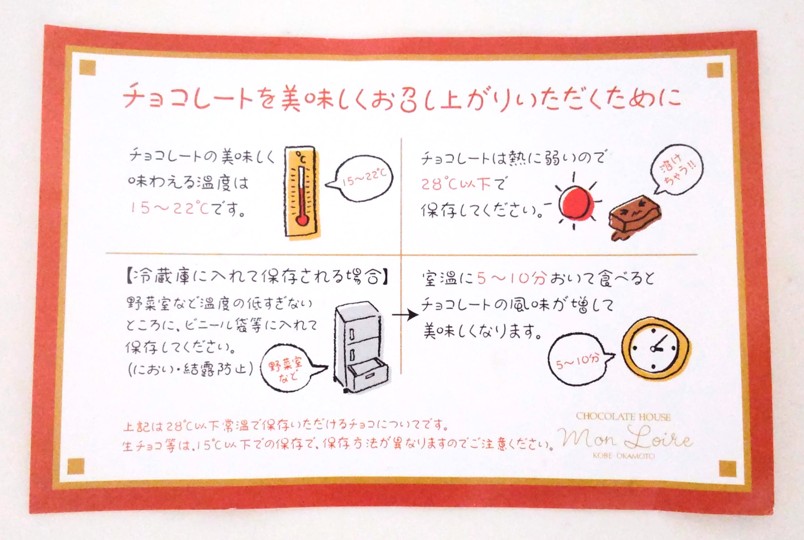 チョコレートを美味しくお召し上がりいただくために
チョコレートの美味しく
味わえる温度は
15〜22℃です。
℃
15〜22℃
チョコレートは熱に弱いので
28℃以下で
保存してください。
溶け
ちゃう!!
【冷蔵庫に入れて保存される場合】
野菜室など温度の低すぎない
ところに、ビニール袋等に入れて
保存してください。
(におい・結露防止)
野菜室
など
室温に5〜10分おいて食べると
チョコレートの風味が増して
美味しくなります。
5〜10分
上記は28℃以下常温で保存いただけるチョコについてです。
生チョコ等は、15℃以下での保存で、保存方法が異なりますのでご注意ください。
CHOCOLATE HOUSE
Mon Loire
KOBE OKAMOTO